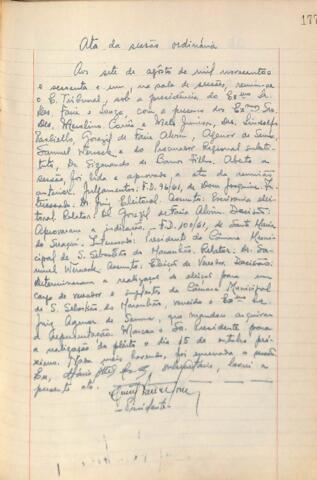 177
Ata da sessão ordinária
Aos sete de agôsto de mil novecentos
e sessenta e um, na sala de sessões, reuniu-se
o E. Tribunal, sob a presidência do Exmo Sr.
Des. Faria e Souza, com a presença dos Exmos Srs.
Des. Merolino Corrêa e Melo Júnior, Drs. Lindolfo
Paoliello, Gorazil de Faria Alvim, Agenor de Senna,
Samuel Werneck e do Procurador Regional substi-
tuto, Dr. Sigismundo de Barros Filho. Aberta a
sessão, foi lida e aprovada a ata da reunião
anterior. Julgamentos: F.D. 96/61, de Dom Joaquim. In-
teressado: Dr. Juiz Eleitoral. Assunto: Escrivania elei-
toral. Relator: Dr. Gorazil de Faria Alvim. Decisão:
Aprovaram a indicação. - F.D. 100/61, de Santa Maria
do Suaçui. Interessado: Presidente da Câmara Muni-
cipal de S. Sebastião do Maranhão. Relator: Dr. Sa-
muel Werneck. Assunto: Eleição de Vereador. Decisão:
Determinaram a realização de eleição para um
cargo de vereador e suplentes da Câmara Municipal
de S. Sebastião do Maranhão, vencido o Exmo Sr.
Juiz Agenor de Senna, que mandava arquivar
a representação. Marcou o Sr. Presidente para
a realização do pleito o dia 15 de outubro pró-
ximo. Nada mais havendo, foi encerrada a sessão.
Eu, secretário, lavrei a
presente ata.
- Presidente -